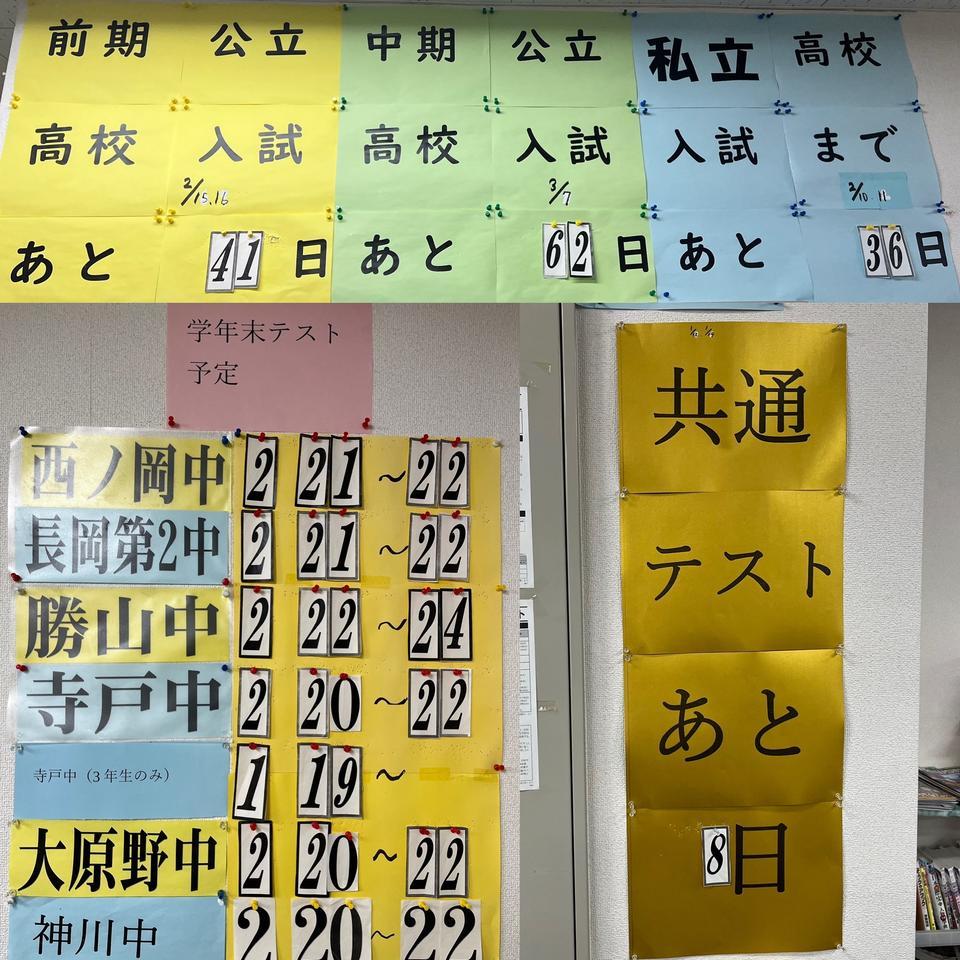 前期 公立
高校 入試
2/15.16
あと 41日
中期 公立
高校 入試
3/7
あと 62日
私立 高校
入試 まで
2/10. 11
あと 36日
学年末テスト
予定
西ノ岡中 2 21 ~ 22
長岡第2中 2 21 ~ 22
勝山中 2 22 ~ 24
寺戸中 2 20 ~ 22
寺戸中（3年生のみ） 1 19 ~
大原野中 2 20 ~ 22
神川中 2 20 ~ 22
共通
テスト
あと
8日